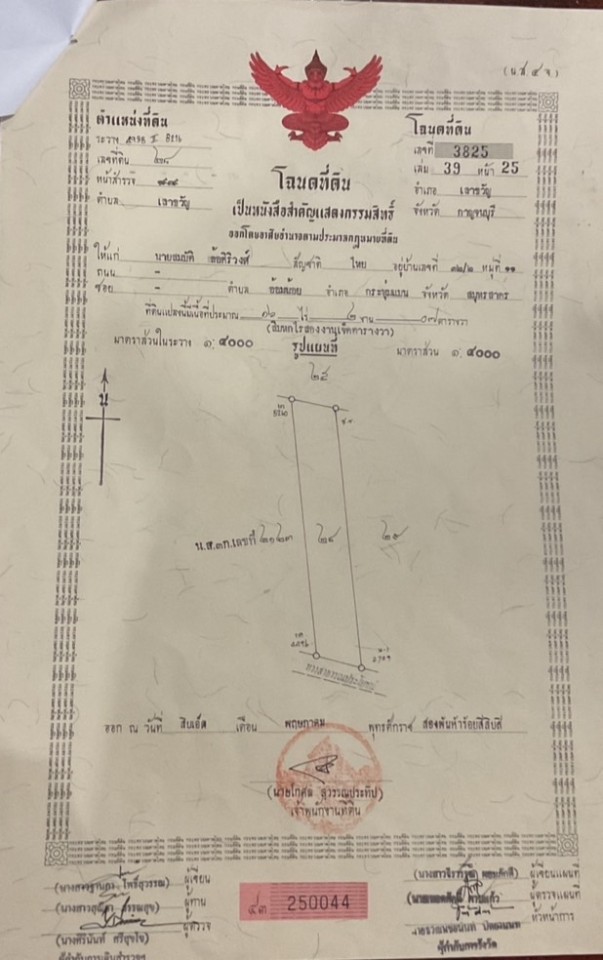 (น.ส.๔ จ.)
ตำแหน่งที่ดิน
ระวาง
เลขที่ดิน ๒๔
หน้าสำรวจ
ตำบล เลาขวัญ
โฉนดที่ดิน
เลขที่ 3825
เล่ม 39 หน้า 25
อำเภอ เลาขวัญ
จังหวัด กาญจนบุรี
โฉนดที่ดิน
เป็นหนังสือสำคัญแสดงกรรมสิทธิ์
ออกโดยอาศัยอำนาจตามประมวลกฎหมายที่ดิน
ให้แก่ นายสมบัติ สัญชาติ ไทย อยู่บ้านเลขที่ ๓๒/๒ หมู่ที่ ๑๑
ถนน -
ซอย - ตำบล อ้อมน้อย อำเภอ กระทุ่มแบน จังหวัด สมุทรสาคร
ที่ดินแปลงนี้มีเนื้อที่ประมาณ ๑๖ ไร่ ๒ งาน ๐๗ ตารางวา
(สิบหกไร่สองงานเจ็ดตารางวา)
มาตราส่วนในระวาง ๑:๔๐๐๐ รูปแผนที่ มาตราส่วน ๑:๔๐๐๐
น
๒๕
น.ส.๓ก.เลขที่ ๒๔ ๒๕
ทางสาธารณประโยชน์
ออก ณ วันที่ สิบเอ็ด เดือน พฤษภาคม พุทธศักราช สองพันห้าร้อยสี่สิบสี่
(นายโกศล สุวรรณประทีป)
เจ้าพนักงานที่ดิน
โพธิ์สุวรรณ) ผู้เขียน
ผู้ทาน
ผู้ตรวจ
(นางศิรินันท์ ศรีสุขใจ)
ผู้กำกับการเดินสำรวจฯ
๔๓ 250044
ผู้เขียนแผนที่
ผู้ตรวจแผนที่
หัวหน้าการ
ผู้กำกับการรังวัด